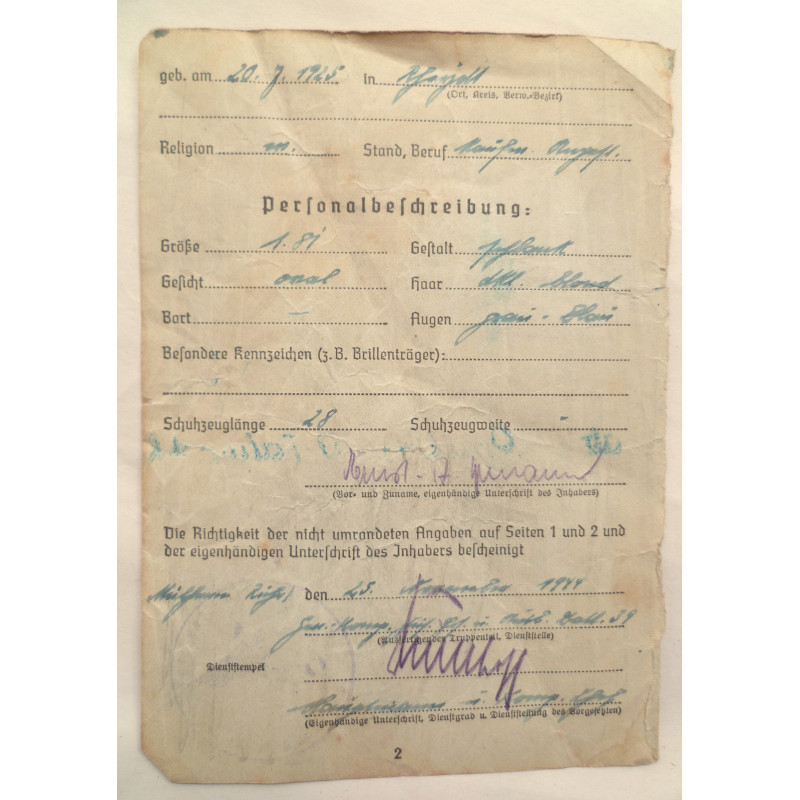 geb. am 20. 7. 1925 in
(Ort, Kreis, Verw.-Bezirk)
Religion Stand, Beruf Kaufm. Angest.
Personalbeschreibung:
Größe 1.81 Gestalt schlank
Gesicht oval Haar dkl. blond
Bart – Augen grau-blau
Besondere Kennzeichen (z.B. Brillenträger):
Schuhzeuglänge 28 Schuhzeugweite -
(Vor- und Zuname, eigenhändige Unterschrift des Inhabers)
Die Richtigkeit der nicht umrandeten Angaben auf Seiten 1 und 2 und
der eigenhändigen Unterschrift des Inhabers bescheinigt
den 25. November 1944
(Ausfertigender Truppenteil, Dienststelle)
Dienststempel
Hauptmann u. Komp.
(Eigenhändige Unterschrift, Dienstgrad u. Dienststellung des Vorgesetzten)
2